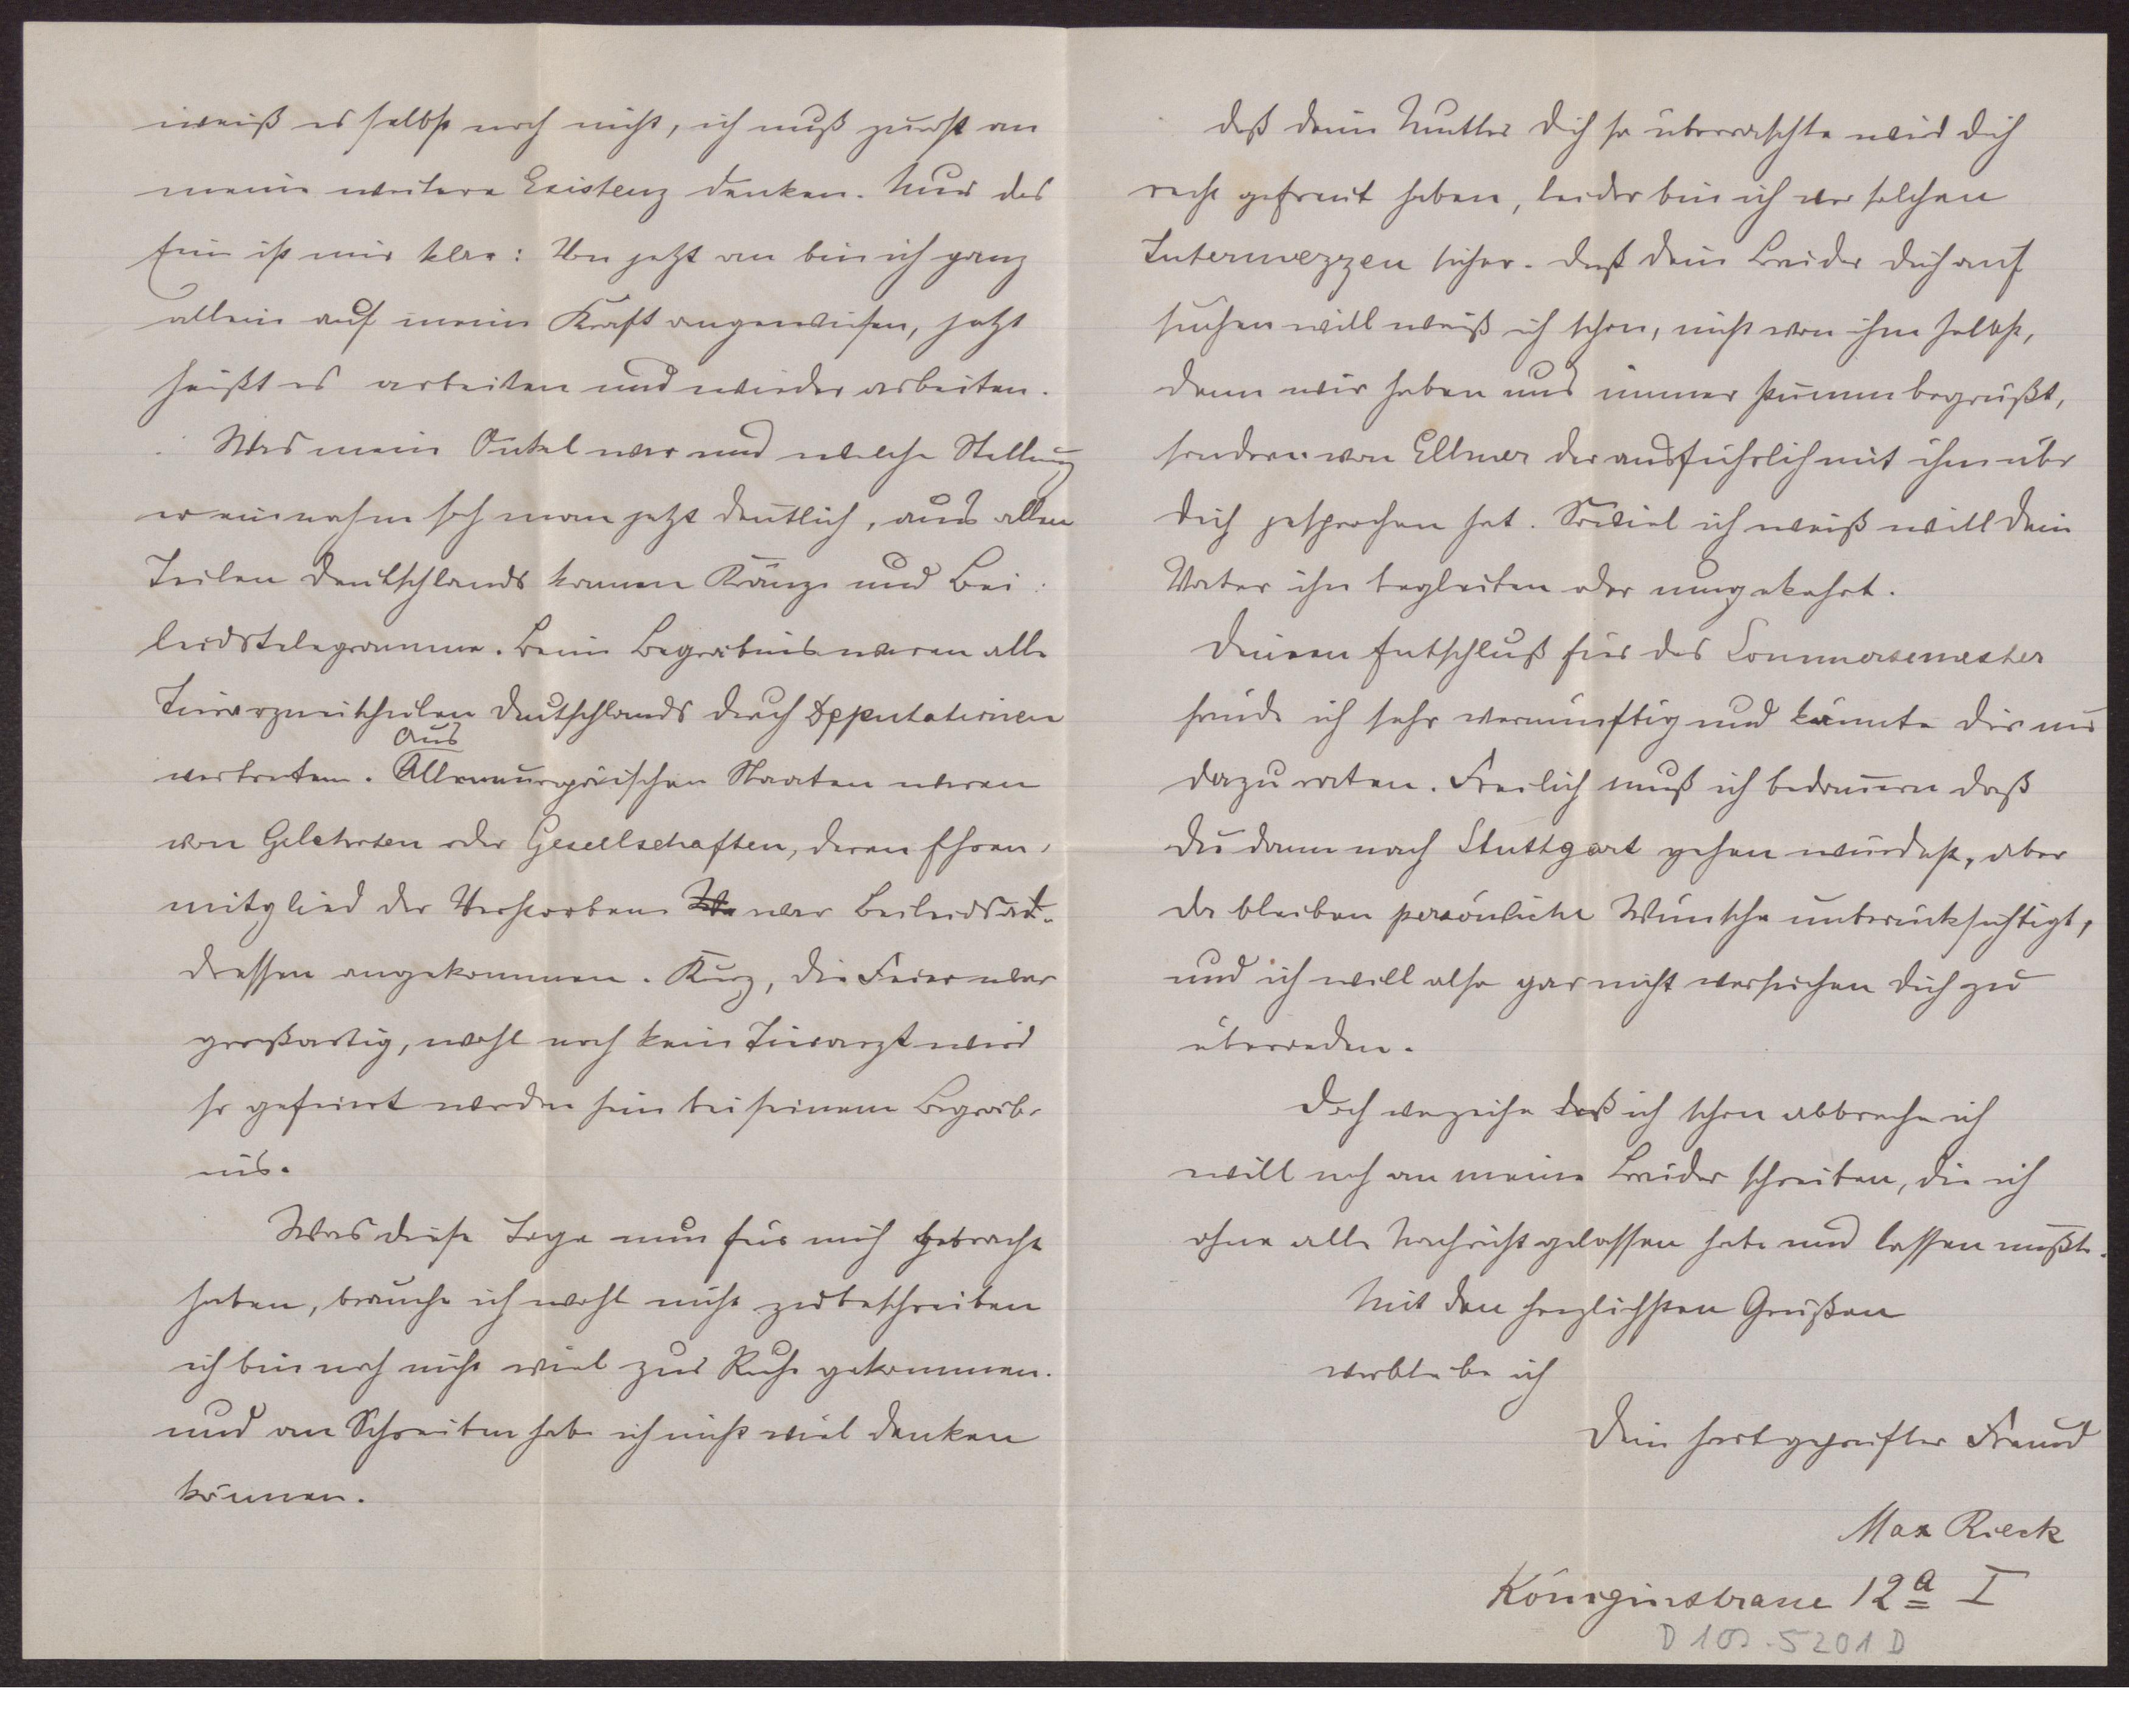 weiß es selbst noch nicht, ich muß zuerst an
meine weitere Existenz denken. Nur das
Eine ist mir klar: Von jetzt an bin ich ganz
allein auf meine Kraft angewiesen, jetzt
heißt es arbeiten und wieder arbeiten.
Was mein Onkel war und welche Stellung
er einnahm sah man jetzt deutlich, aus allen
Teilen Deutschlands kamen Kränze und Bei-
leidstelegramme. Beim Begräbnis waren alle
Tierarzneischulen Deutschlands durch Deputationen
aus
vertreten. Allen europäischen Staaten waren
von Gelehrten oder Gesellschaften, deren Ehren-
mitglied der Verstorbene war Beileidsad-
dressen angekommen. Kurz, die Feier war
großartig, wohl noch kein Tierarzt wird
so gefeiert worden sein bei seinem Begräb-
nis.
Was diese Tage nun für mich gebracht
haben, brauche ich wohl nicht zu beschreiben
ich bin noch nicht viel zur Ruhe gekommen.
und an Schreiben habe ich nicht viel denken
können.
Daß deine Mutter dich so überraschte wird dich
recht gefreut haben, leider bin ich vor solchen
Intermezzen sicher. Daß dein Bruder dich auf
suchen will weiß ich schon, nicht von ihm selbst,
denn wir haben uns immer stumm begrüßt,
sondern von Ellmer der ausführlich mit ihm über
dich gesprochen hat. Soviel ich weiß will dein
Vater ihn begleiten oder umgekehrt.
Deinen Entschluß für das Sommersemester
finde ich sehr vernünftig und könnte dir nur
dazu raten. Freilich muß ich bedauern daß
du dann nach Stuttgart gehen würdest, aber
da bleiben persönliche Wünsche unberücksichtigt,
und ich will also gar nicht versuchen dich zu
überreden.
Doch verzeihe daß ich schon abbreche ich
will noch an meine Brüder schreiben, die ich
ohne alle Nachricht gelassen habe und lassen mußte.
Mit den herzlichsten Grüßen
verbleibe ich
Dein hartgeprüfter Freund
Max Rieck
Königinstrasse 12a I
D 100.5201 D